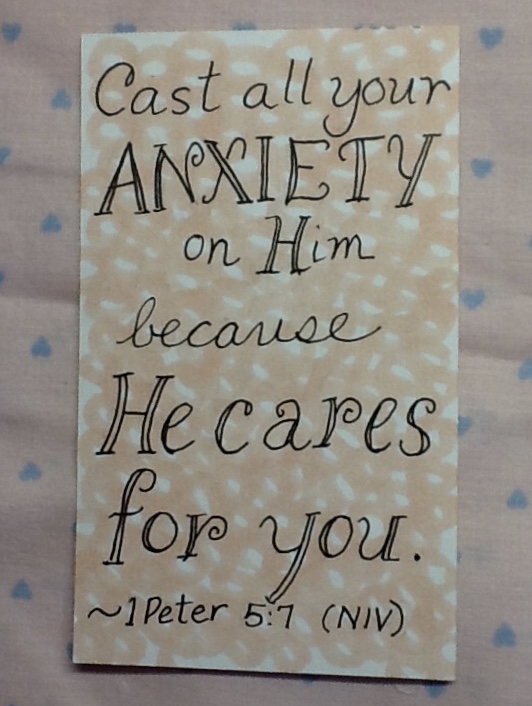 Cast all your
ANXIETY
on Him
because
He cares
for you.
~1 Peter 5:7 (NIV)